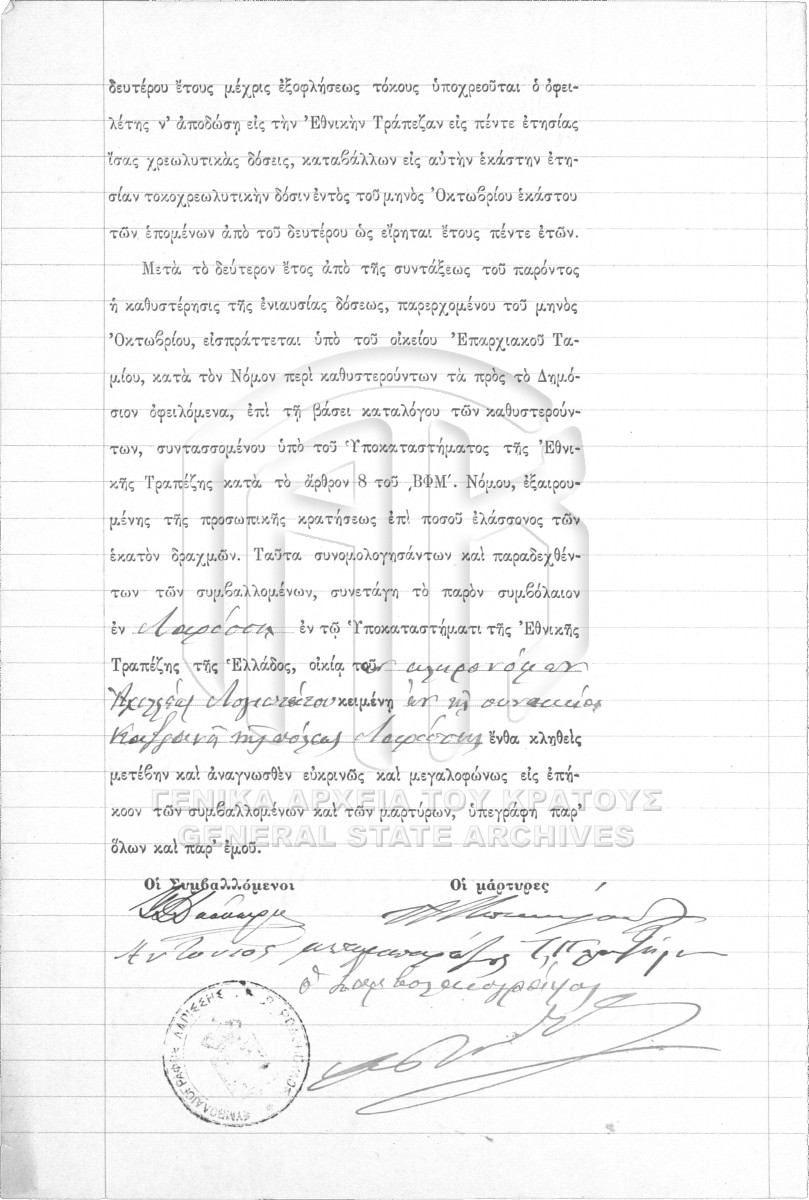 δευτέρου ἔτους μέχρις ἐξοφλήσεως τόκους ὑποχρεοῦται ὁ ὀφει-
λέτης ν' ἀποδώσῃ εἰς τὴν Ἐθνικὴν Τράπεζαν εἰς πέντε ἐτησίας
ἴσας χρεωλυτικὰς δόσεις, καταβάλλων εἰς αὐτὴν ἑκάστην ἐτη-
σίαν τοκοχρεωλυτικὴν δόσιν ἐντὸς τοῦ μηνὸς Ὀκτωβρίου ἑκάστου
τῶν ἑπομένων ἀπὸ τοῦ δευτέρου ὡς εἴρηται ἔτους πέντε ἐτῶν.
Μετὰ τὸ δεύτερον ἔτος ἀπὸ τῆς συντάξεως τοῦ παρόντος
ἡ καθυστέρησις τῆς ἐνιαυσίας δόσεως, παρερχομένου τοῦ μηνὸς
Ὀκτωβρίου, εἰσπράττεται ὑπὸ τοῦ οἰκείου Ἐπαρχιακοῦ Τα-
μίου, κατὰ τὸν Νόμον περὶ καθυστερούντων τὰ πρὸς τὸ Δημό-
σιον ὀφειλόμενα, ἐπὶ τῇ βάσει καταλόγου τῶν καθυστερούν-
των, συντασσομένου ὑπὸ τοῦ Ὑποκαταστήματος τῆς Ἐθνι-
κῆς Τραπέζης κατὰ τὸ ἄρθρον 8 τοῦ ͵ΒΦΜ΄. Νόμου, ἐξαιρου-
μένης τῆς προσωπικῆς κρατήσεως ἐπὶ ποσοῦ ἐλάσσονος τῶν
ἑκατὸν δραχμῶν. Ταῦτα συνομολογησάντων καὶ παραδεχθέν-
των τῶν συμβαλλομένων, συνετάγη τὸ παρὸν συμβόλαιον
ἐν Λαρίσσῃ ἐν τῷ Ὑποκαταστήματι τῆς Ἐθνικῆς
Τραπέζης τῆς Ἑλλάδος, οἰκίᾳ τῶν κληρονόμων
Ἀχιλλέως Λογιωτάτου κειμένῃ ἐν τῇ συνοικίᾳ
τῆς πόλεως Λαρίσσης ἔνθα κληθεὶς
μετέβην καὶ ἀναγνωσθὲν εὐκρινῶς καὶ μεγαλοφώνως εἰς ἐπή-
κοον τῶν συμβαλλομένων καὶ τῶν μαρτύρων, ὑπεγράφη παρ'
ὅλων καὶ παρ' ἐμοῦ.
ΓΕΝΙΚΑ ΑΡΧΕΙΑ ΤΟΥ ΚΡΑΤΟΥΣ
GENERAL STATE ARCHIVES
Οἱ Συμβαλλόμενοι Οἱ μάρτυρες
Αντώνιος
Ο Συμβολαιογράφος
ΣΥΜΒΟΛΑΙΟΓΡΑΦΟΣ ΛΑΡΙΣΣΗΣ